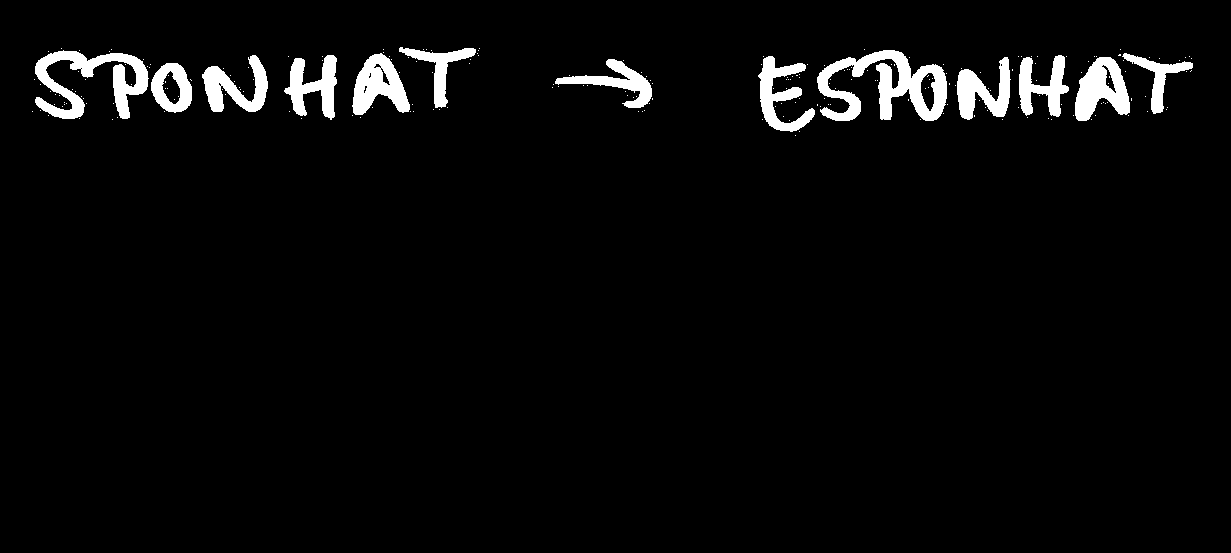 SPONHAT → ESPONHAT